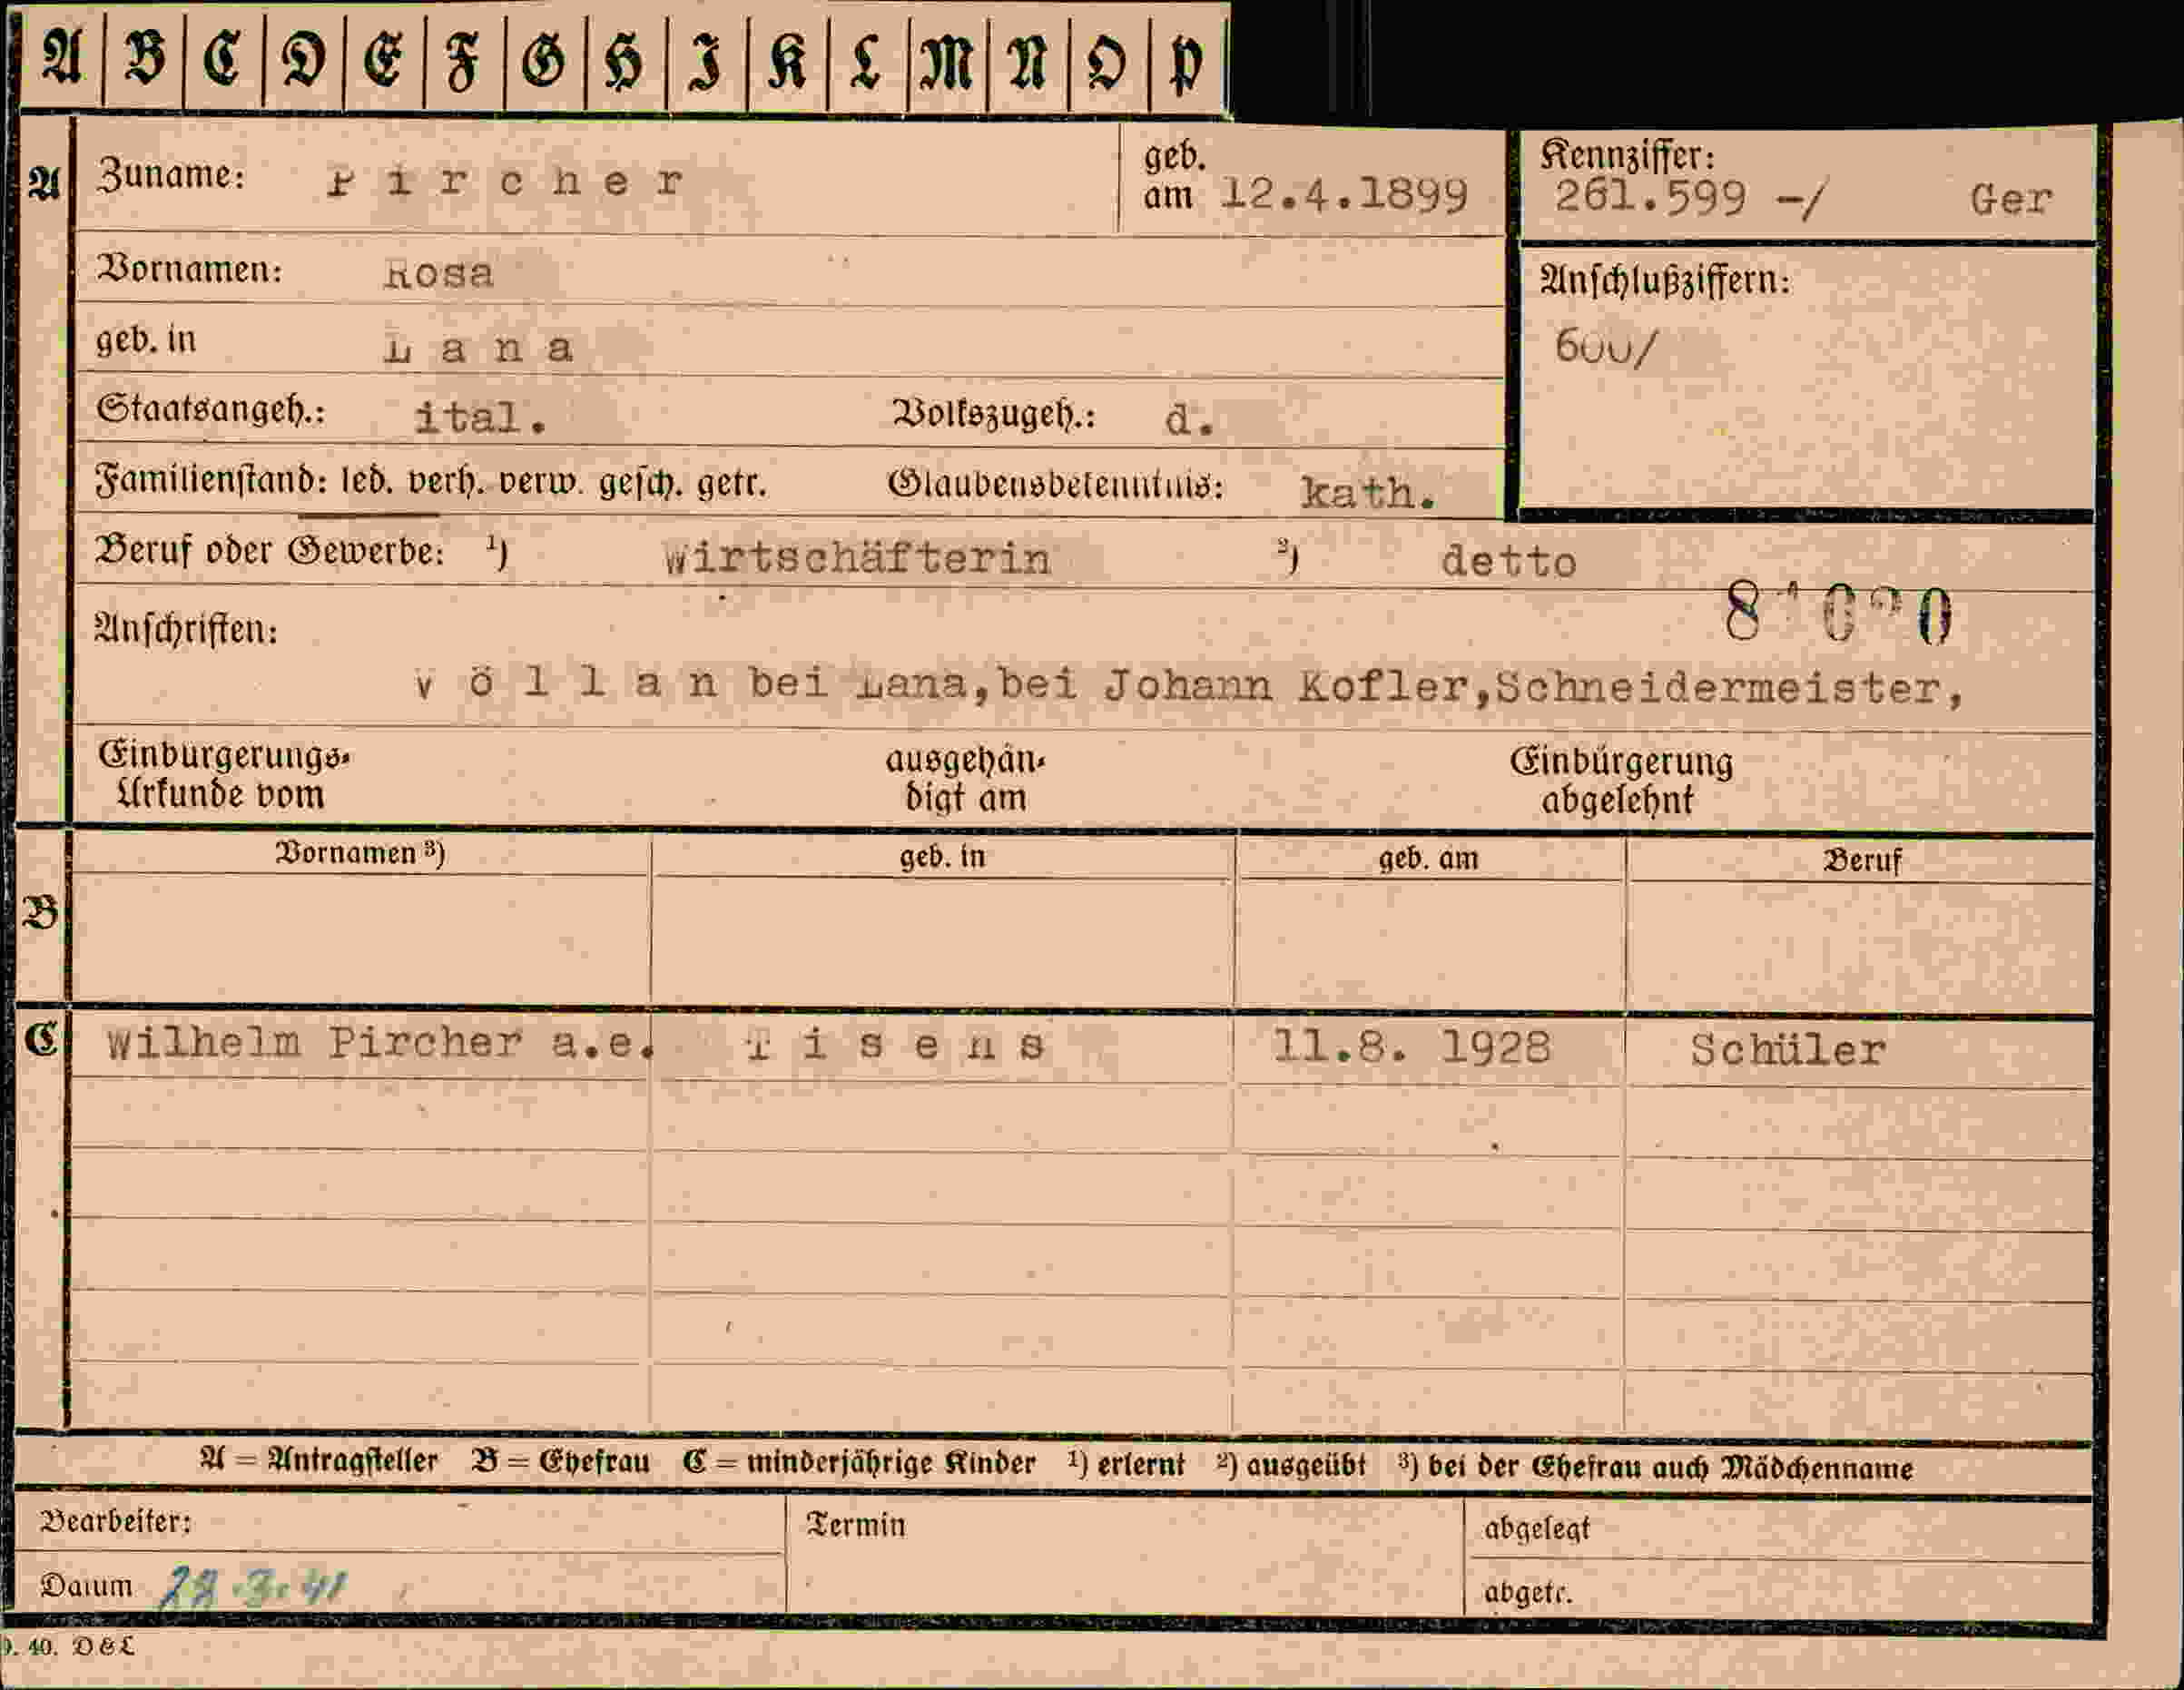 A B C D E F G H I K L M N O P
A Zuname: Pircher geb. am 12.4.1899 Kennziffer: 261.599 -/ Ger
Vornamen: Rosa Anschlußziffern:
geb. in Lana 600/
Staatsangeh.: ital. Volkszugeh.: d.
Familienstand: led. verh. verw. gesch. getr. Glaubensbekenntnis: kath.
Beruf oder Gewerbe: ¹) Wirtschäfterin ²) detto
Anschriften:
Völlan bei Lana,bei Johann Kofler,Schneidermeister,
Einbürgerungs-Urkunde vom ausgehändigt am Einbürgerung abgelehnt
Vornamen ³) geb. in geb. am Beruf
B
C Wilhelm Pircher a.e. Tisens 11.8. 1928 Schüler
A = Antragsteller B = Ehefrau C = minderjährige Kinder ¹) erlernt ²) ausgeübt ³) bei der Ehefrau auch Mädchenname
Bearbeiter: Termin abgelegt
Datum abgetr.
40. D & L